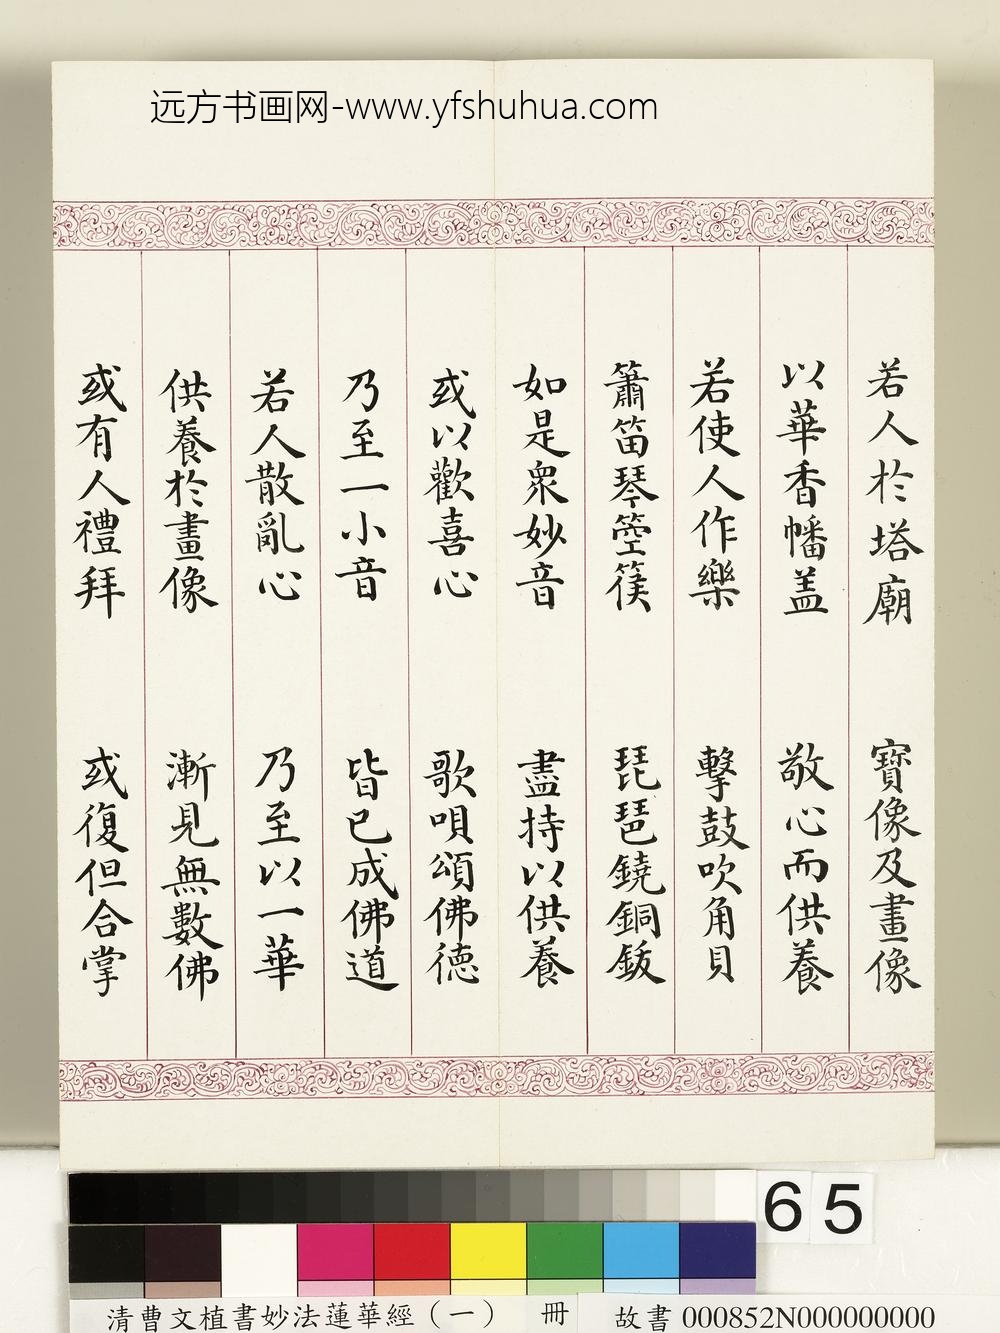 远方书画网-www.yfshuhua.com
若人於塔廟 寶像及畫像
以華香幡盖 敬心而供養
若使人作樂 擊鼓吹角貝
簫笛琴箜篌 琵琶鐃銅鈸
如是衆妙音 盡持以供養
或以歡喜心 歌唄頌佛德
乃至一小音 皆已成佛道
若人散亂心 乃至以一華
供養於畫像 漸見無數佛
或有人禮拜 或復但合掌
65
清曹文植書妙法蓮華經（一） 冊 故書 000852N000000000